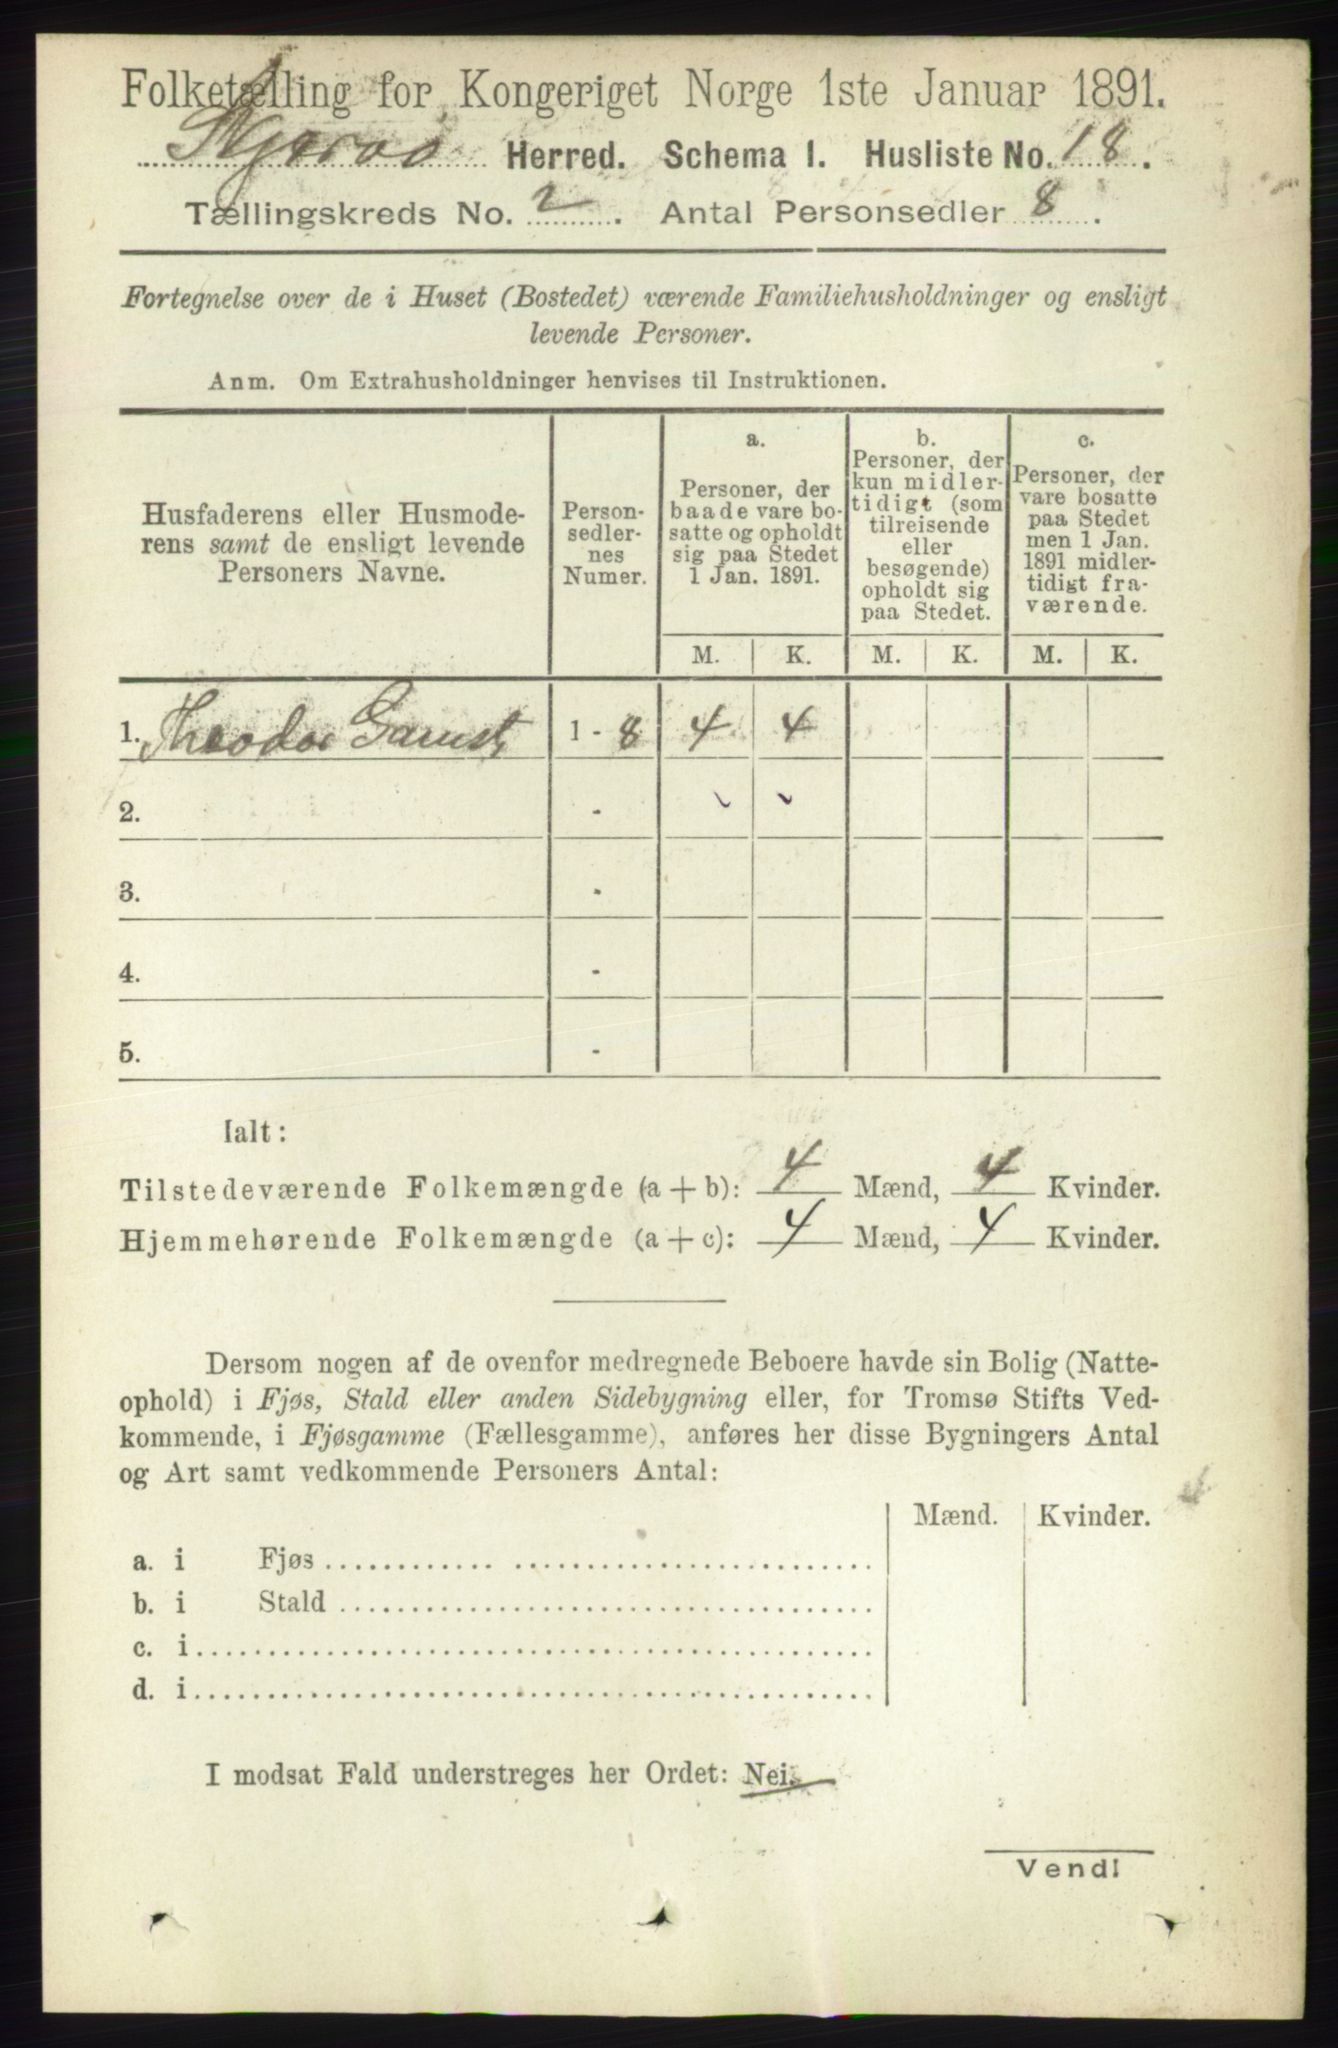 Folketælling for Kongeriget Norge 1ste Januar 1891.
Herred. Schema I. Husliste No. 18.
Tællingskreds No. 2. Antal Personsedler 8.
Fortegnelse over de i Huset (Bostedet) værende Familiehusholdninger og ensligt
levende Personer.
Anm. Om Extrahusholdninger henvises til Instruktionen.
Husfaderens eller Husmode-
rens samt de ensligt levende
Personers Navne.
Person-
sedler-
nes
Numer.
a.
Personer, der
baade vare bo-
satte og opholdt
sig paa Stedet
1 Jan. 1891.
b.
Personer, der
kun midler-
tidigt (som
tilreisende
eller
besøgende)
opholdt sig
paa Stedet.
c.
Personer, der
vare bosatte
paa Stedet
men 1 Jan.
1891 midler-
tidigt fra-
værende.
M. K. M. K. M. K.
1. Theodor 1 - 8 4 4
2. -
3. -
4. -
5. -
Ialt:
Tilstedeværende Folkemængde (a + b): 4 Mænd, 4 Kvinder.
Hjemmehørende Folkemængde (a + c): 4 Mænd, 4 Kvinder.
Dersom nogen af de ovenfor medregnede Beboere havde sin Bolig (Natte-
ophold) i Fjøs, Stald eller anden Sidebygning eller, for Tromsø Stifts Ved-
kommende, i Fjøsgamme (Fællesgamme), anføres her disse Bygningers Antal
og Art samt vedkommende Personers Antal:
Mænd. Kvinder.
a. i Fjøs
b. i Stald
c. i
d. i
I modsat Fald understreges her Ordet: Nei.
Vend!